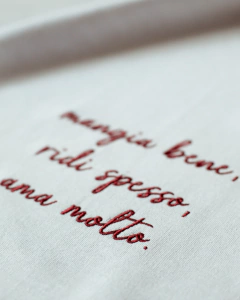 mangia bene,
ridi spesso,
ama molto.